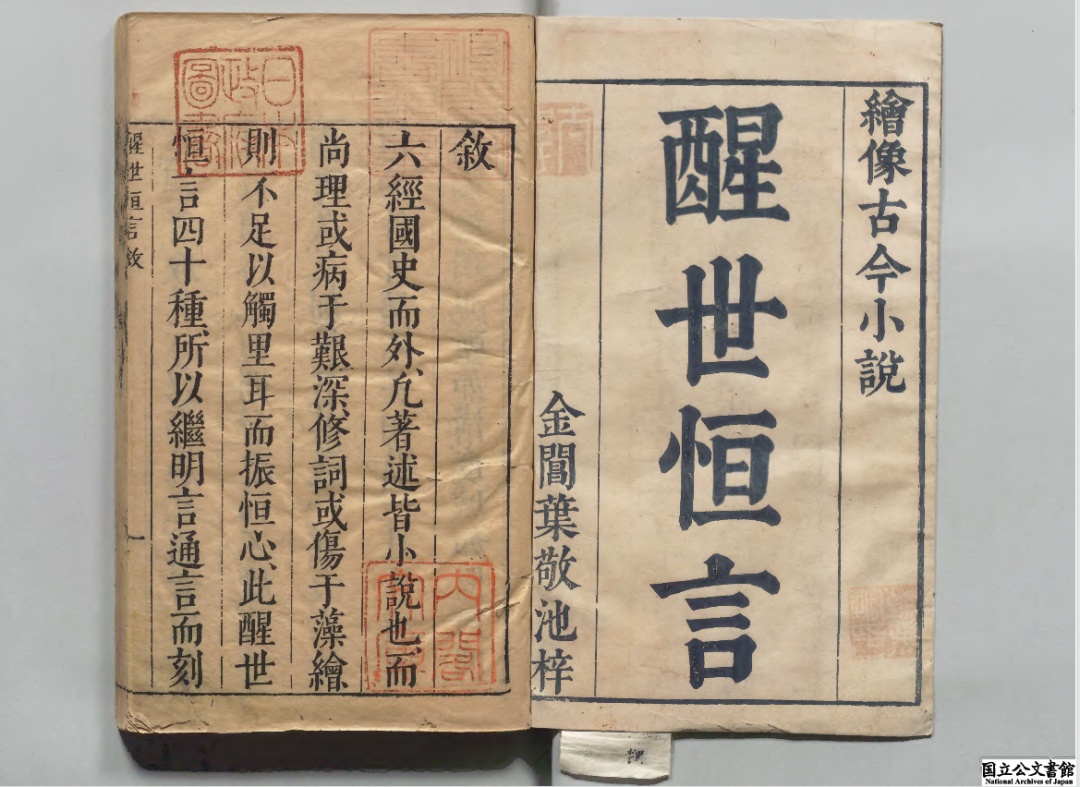 繪像古今小說
醒世恒言
金閶葉敬池梓
敘
六經國史而外、凢著述皆小說也、而
尚理或病于艱深、修詞或傷于藻繪
則不足以觸里耳而振恒心、此醒世
恒言四十種、所以繼明言通言而刻
醒世恒言敘
一
日本
政府
圖書
内閣
文庫
国立公文書館
National Archives of Japan